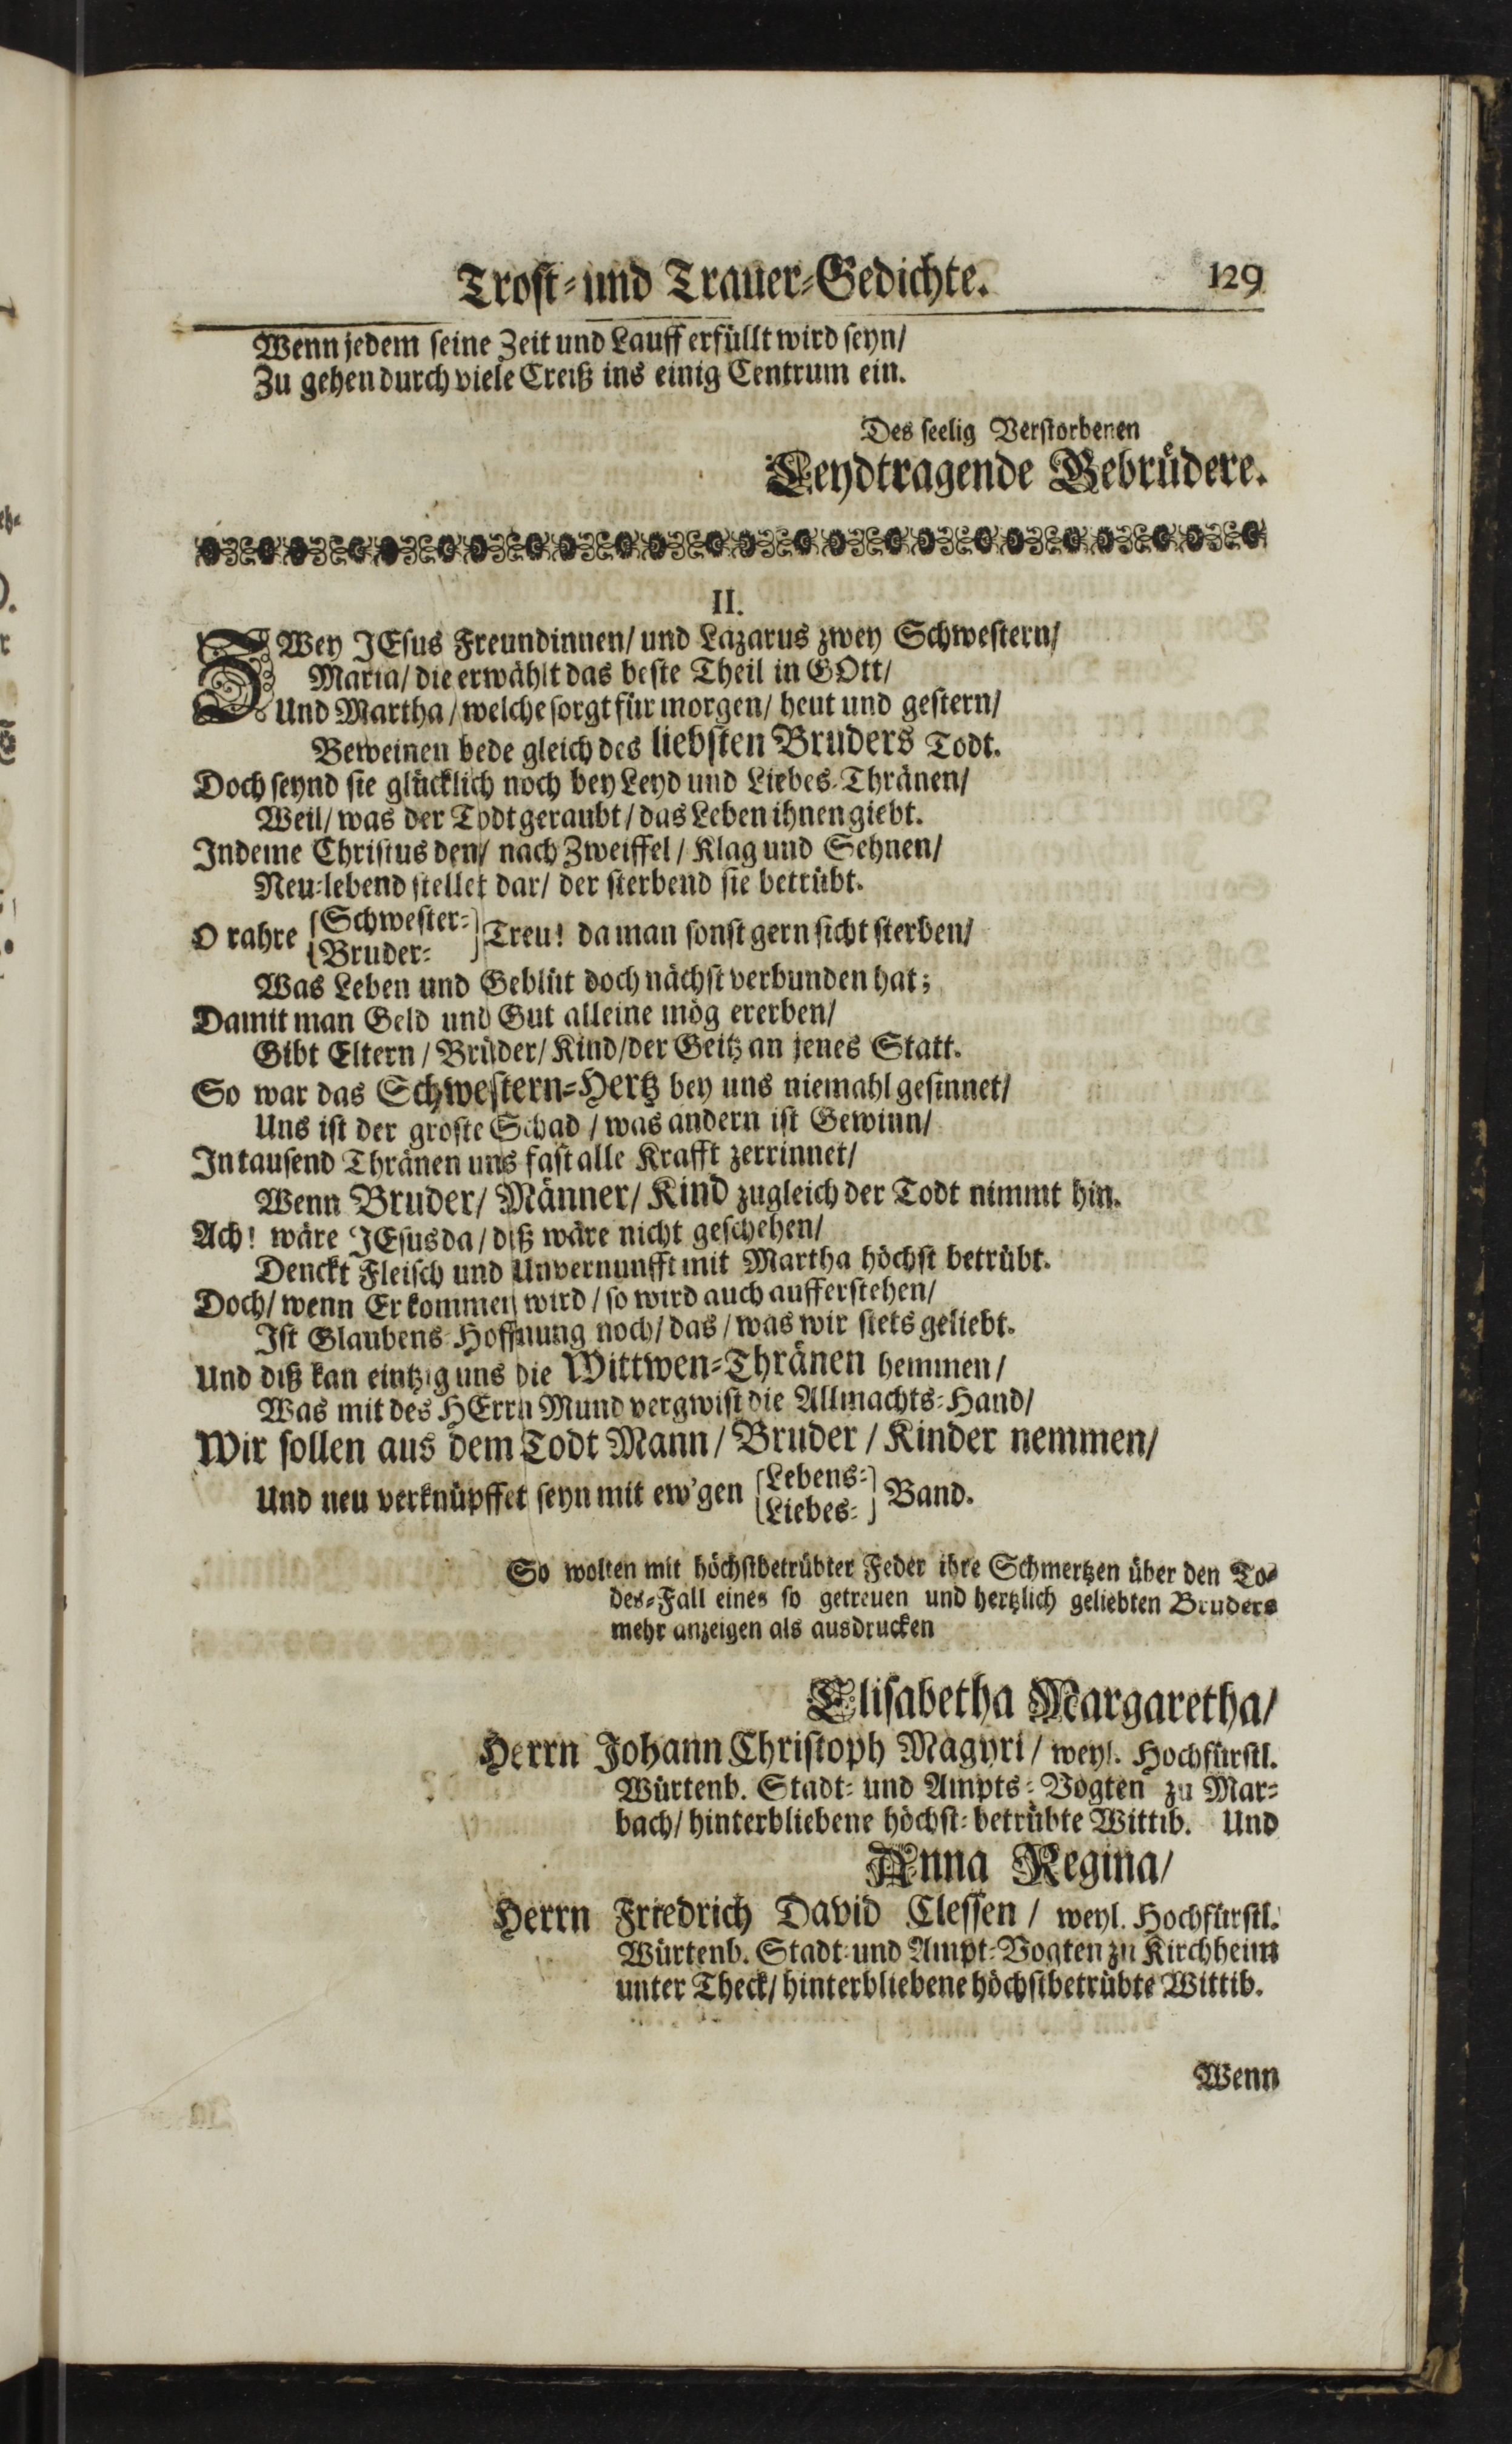 Trost- und Trauer-Gedichte. 129
Wenn jedem seine Zeit und Lauff erfüllt wird seyn/
Zu gehen durch viele Creiß ins einig Centrum ein.
Des seelig Verstorbenen
Leydtragende Gebrüdere.
II.
ZWey JEsus Freundinnen/ und Lazarus zwey Schwestern/
Maria/ die erwählt das beste Theil in GOtt/
Und Martha/ welche sorgt für morgen/ heut und gestern/
Beweinen bede gleich des liebsten Bruders Todt.
Doch seynd sie glücklich noch bey Leyd und Liebes-Thränen/
Weil/ was der Todt geraubt/ das Leben ihnen giebt.
Indeme Christus den/ nach Zweiffel/ Klag und Sehnen/
Neu-lebend stellet dar/ der sterbend sie betrübt.
O rahre {Schwester- Bruder-} Treu! da man sonst gern sicht sterben/
Was Leben und Geblüt doch nächst verbunden hat;
Damit man Geld und Gut alleine mög ererben/
Gibt Eltern/ Brüder/ Kind/ der Geitz an jenes Statt.
So war das Schwestern-Hertz bey uns niemahl gesinnet/
Uns ist der groste Schad/ was andern ist Gewinn/
In tausend Thränen uns fast alle Krafft zerrinnet/
Wenn Bruder/ Männer/ Kind zugleich der Todt nimmt hin.
Ach! wäre JEsus da/ diß wäre nicht geschehen/
Denckt Fleisch und Unvernunfft mit Martha höchst betrübt.
Doch/ wenn Er kommen wird/ so wird auch aufferstehen/
Ist Glaubens Hoffnung noch/ das/ was wir stets geliebt.
Und diß kan eintzig uns die Wittwen-Thränen hemmen/
Was mit des HErrn Mund vergwist die Allmachts-Hand/
Wir sollen aus dem Todt Mann/ Bruder/ Kinder nemmen/
Und neu verknüpffet seyn mit ew'gen {Lebens- Liebes-} Band.
So wolten mit höchstbetrübter Feder ihre Schmertzen über den To-
des-Fall eines so getreuen und hertzlich geliebten Bruders
mehr anzeigen als ausdrucken
Elisabetha Margaretha/
Herrn Johann Christoph Magyri/ weyl. Hochfürstl.
Würtenb. Stadt- und Ampts-Vogten zu Mar-
bach/ hinterbliebene höchst-betrübte Wittib. Und
Anna Regina/
Herrn Friedrich David Clessen/ weyl. Hochfürstl.
Würtenb. Stadt- und Ampt-Vogten zu Kirchheim
unter Theck/ hinterbliebene höchstbetrübte Wittib.
Wenn